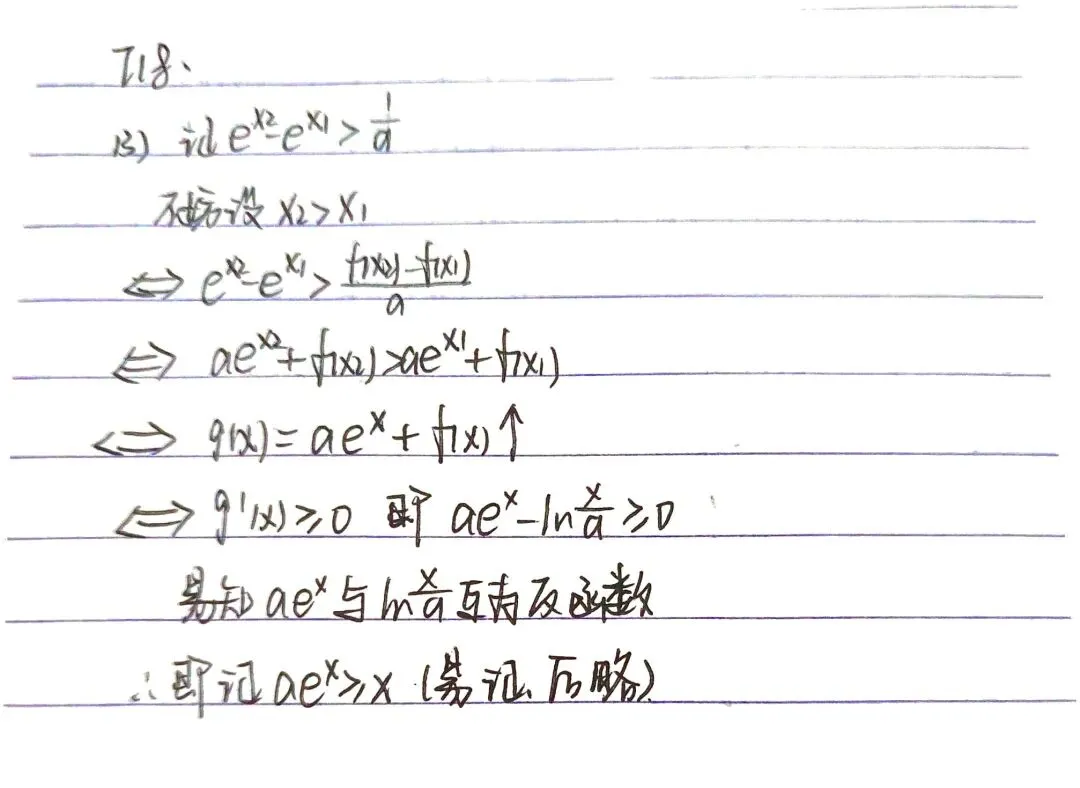 T18、
(3) 证 e^{x2}-e^{x1}>\frac{1}{a}
不妨设 x2>x1
⇔ e^{x2}-e^{x1}>\frac{f(x2)-f(x1)}{a}
⇔ ae^{x2}+f(x2)>ae^{x1}+f(x1)
⇔ g(x)=ae^x+f(x)↑
⇔ g'(x)≥0 即 ae^x-ln\frac{x}{a}≥0
易知 ae^x 与 ln\frac{x}{a} 互为反函数
∴即证 ae^x≥x (易证、后略)